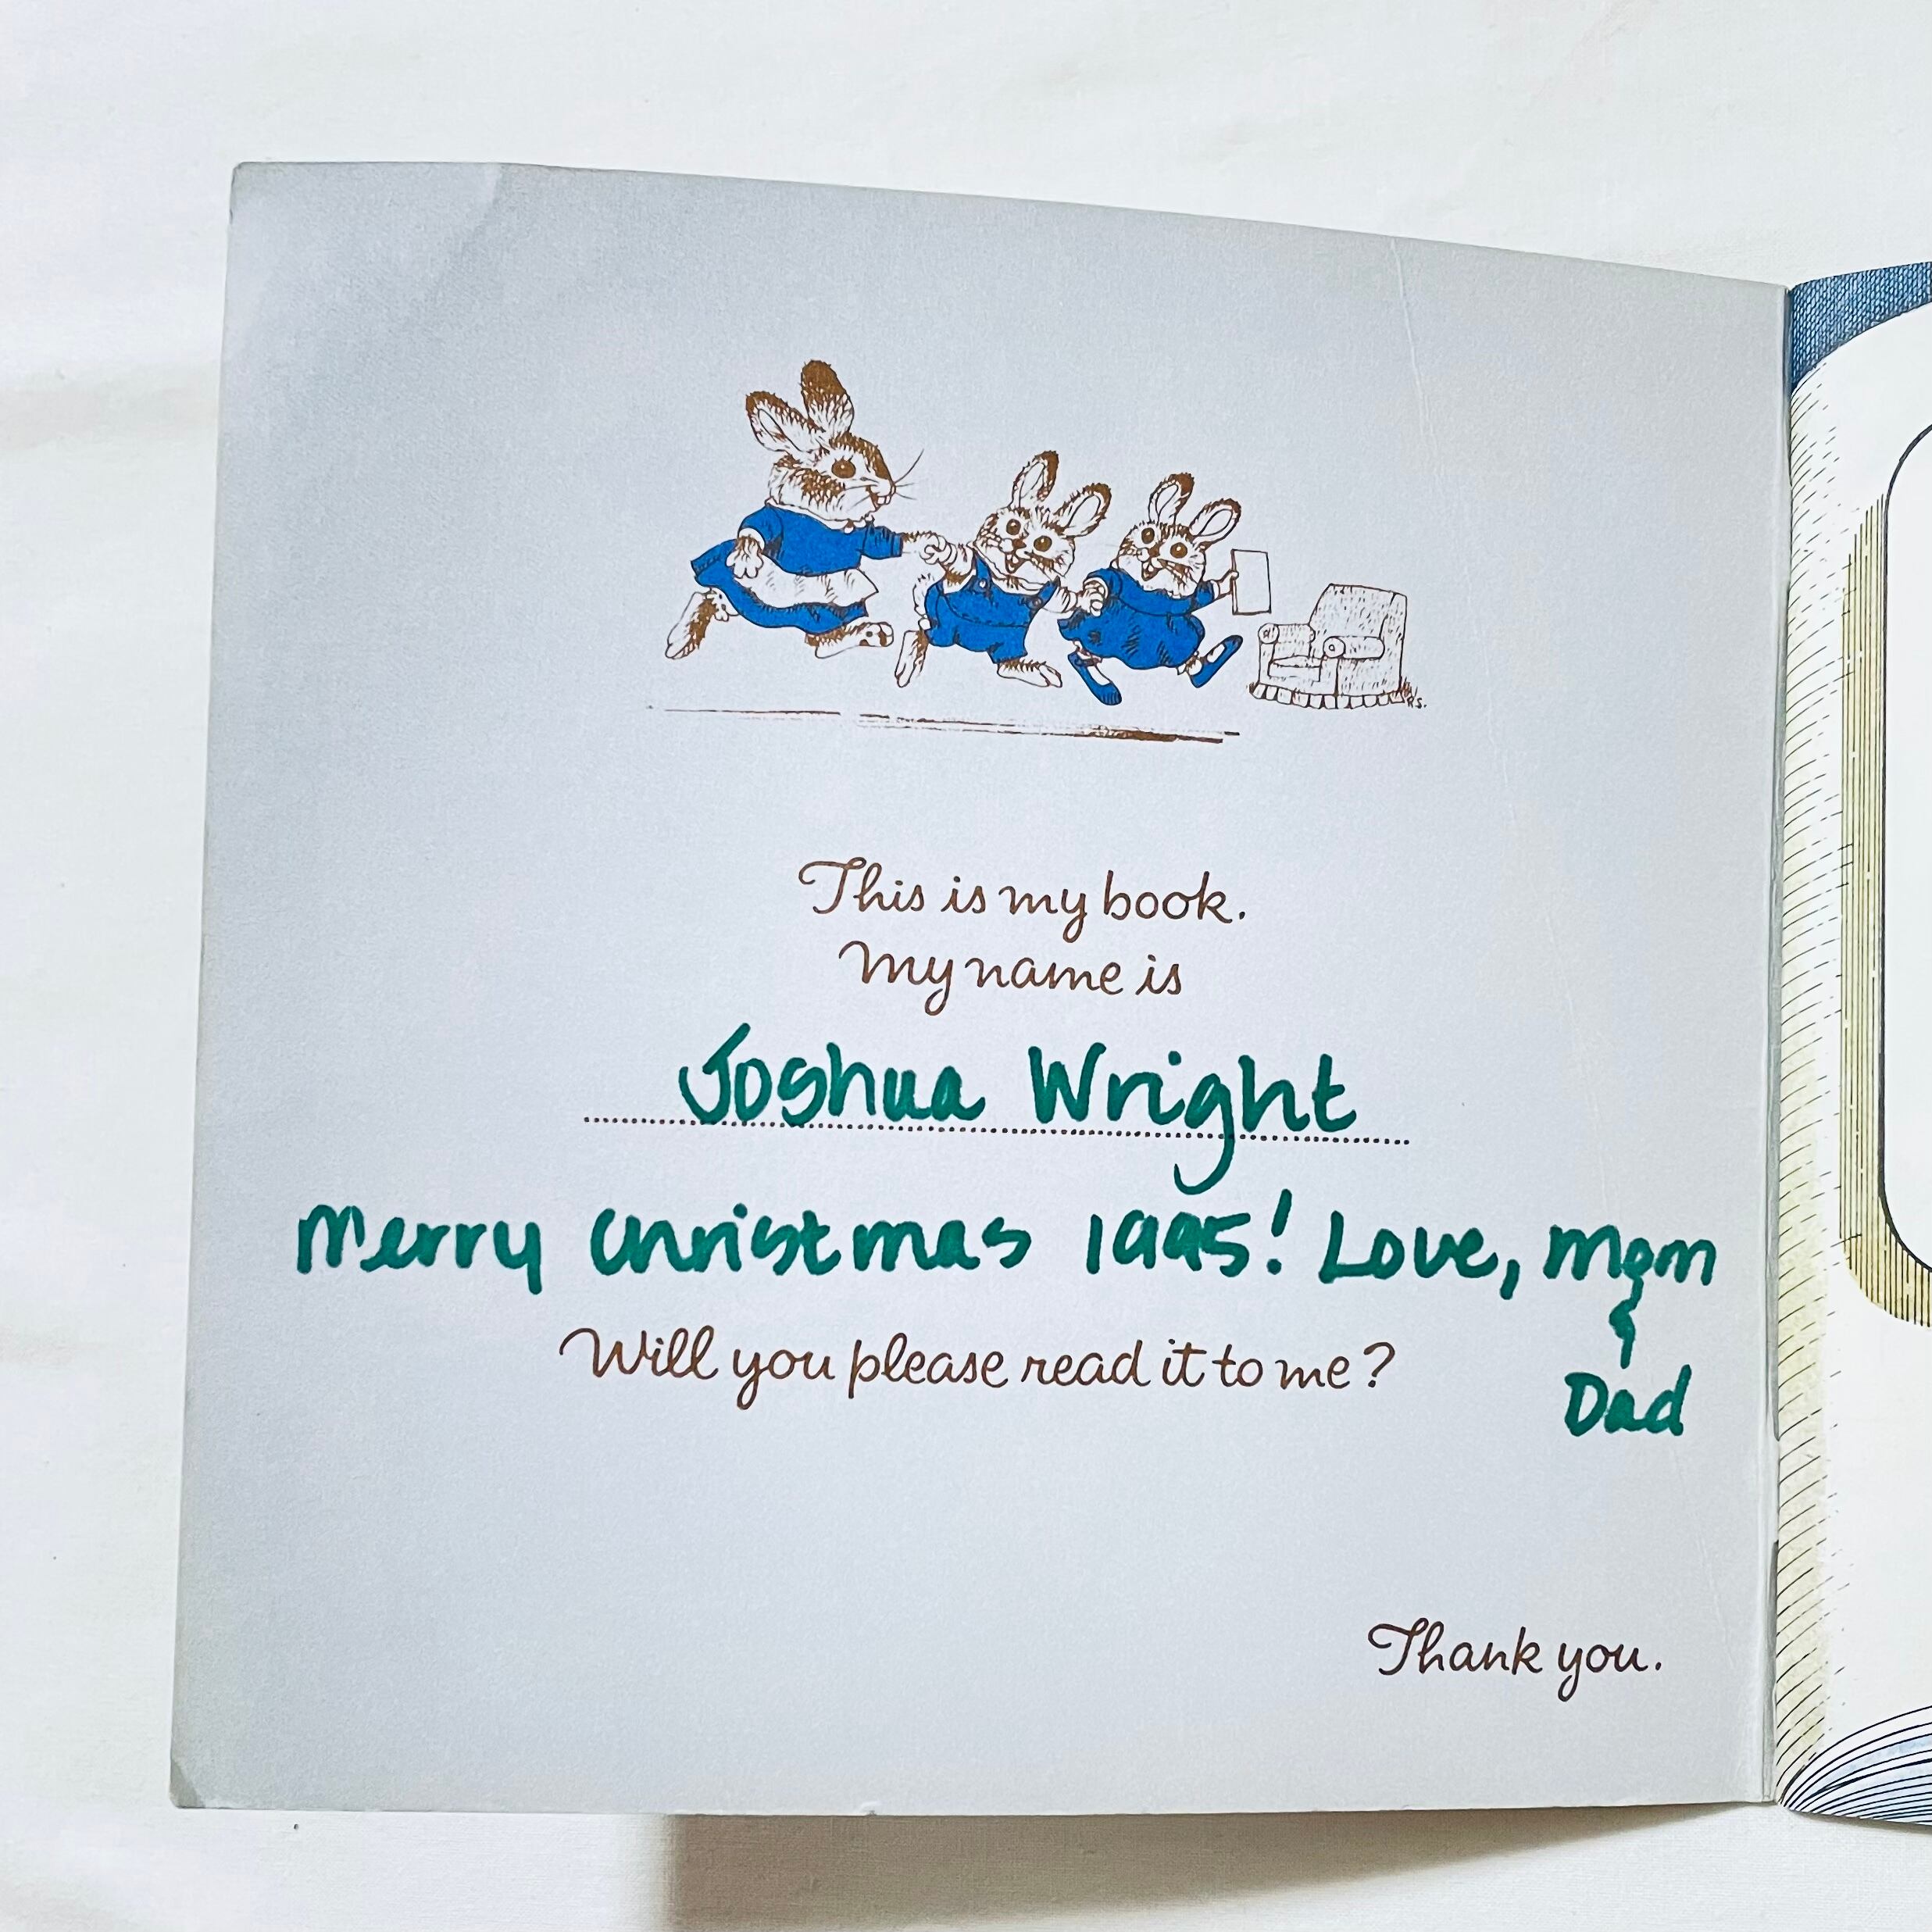 R.S.
This is my book.
My name is
Joshua Wright
Merry Christmas 1995! Love, Mom
&
Dad
Will you please read it to me?
Thank you.